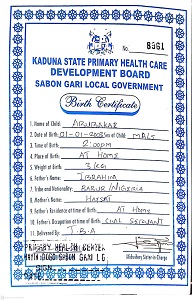 No. 8361
KADUNA STATE PRIMARY HEALTH CARE
DEVELOPMENT BOARD
SABON GARI LOCAL GOVERNMENT
Birth Certificate
1. Name of Child: ABUBAKAR
2. Date of Birth: 01-01-2008 Sex of Child: MALE
3. Time of Birth: 2:00PM
4. Place of Birth: AT HOME
5. Weight at Birth: 3KG
6. Father's Name: IBRAHIM
7. Tribe and Nationality: /NIGERIA
8. Mother's Name:
9. Father's Residence at time of Birth: AT HOME
10. Father's Occupation at time of Birth: CIVIL SERVANT
11. Delivered by T.B.A
PRIMARY HEALTH CENTER
SABON GARI LG
Midwifery Sister-in-Charge